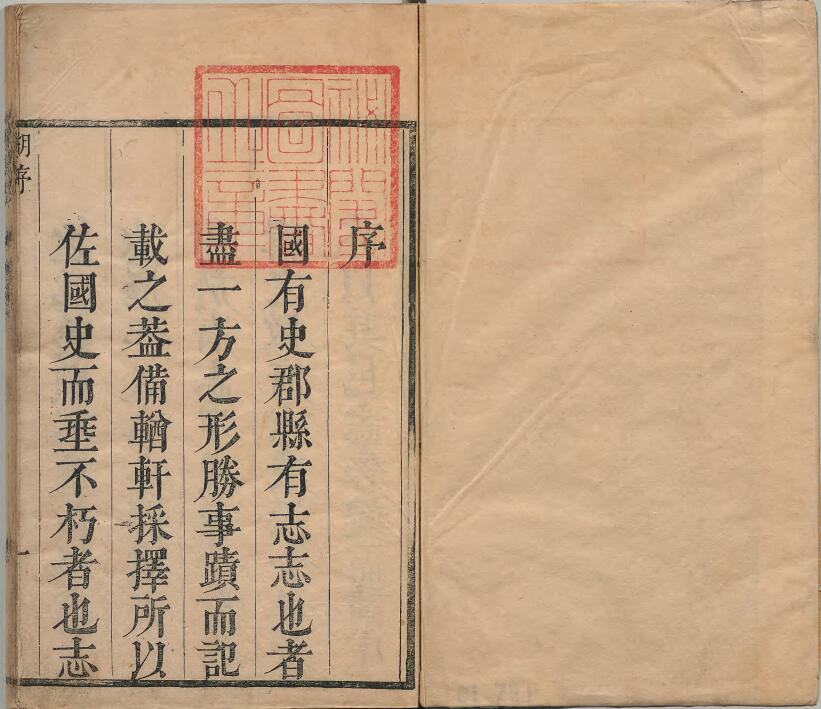 序
國有史郡縣有志志也者
盡一方之形勝事蹟而記
載之葢備輶軒採擇所以
佐國史而垂不朽者也志
胡序
一